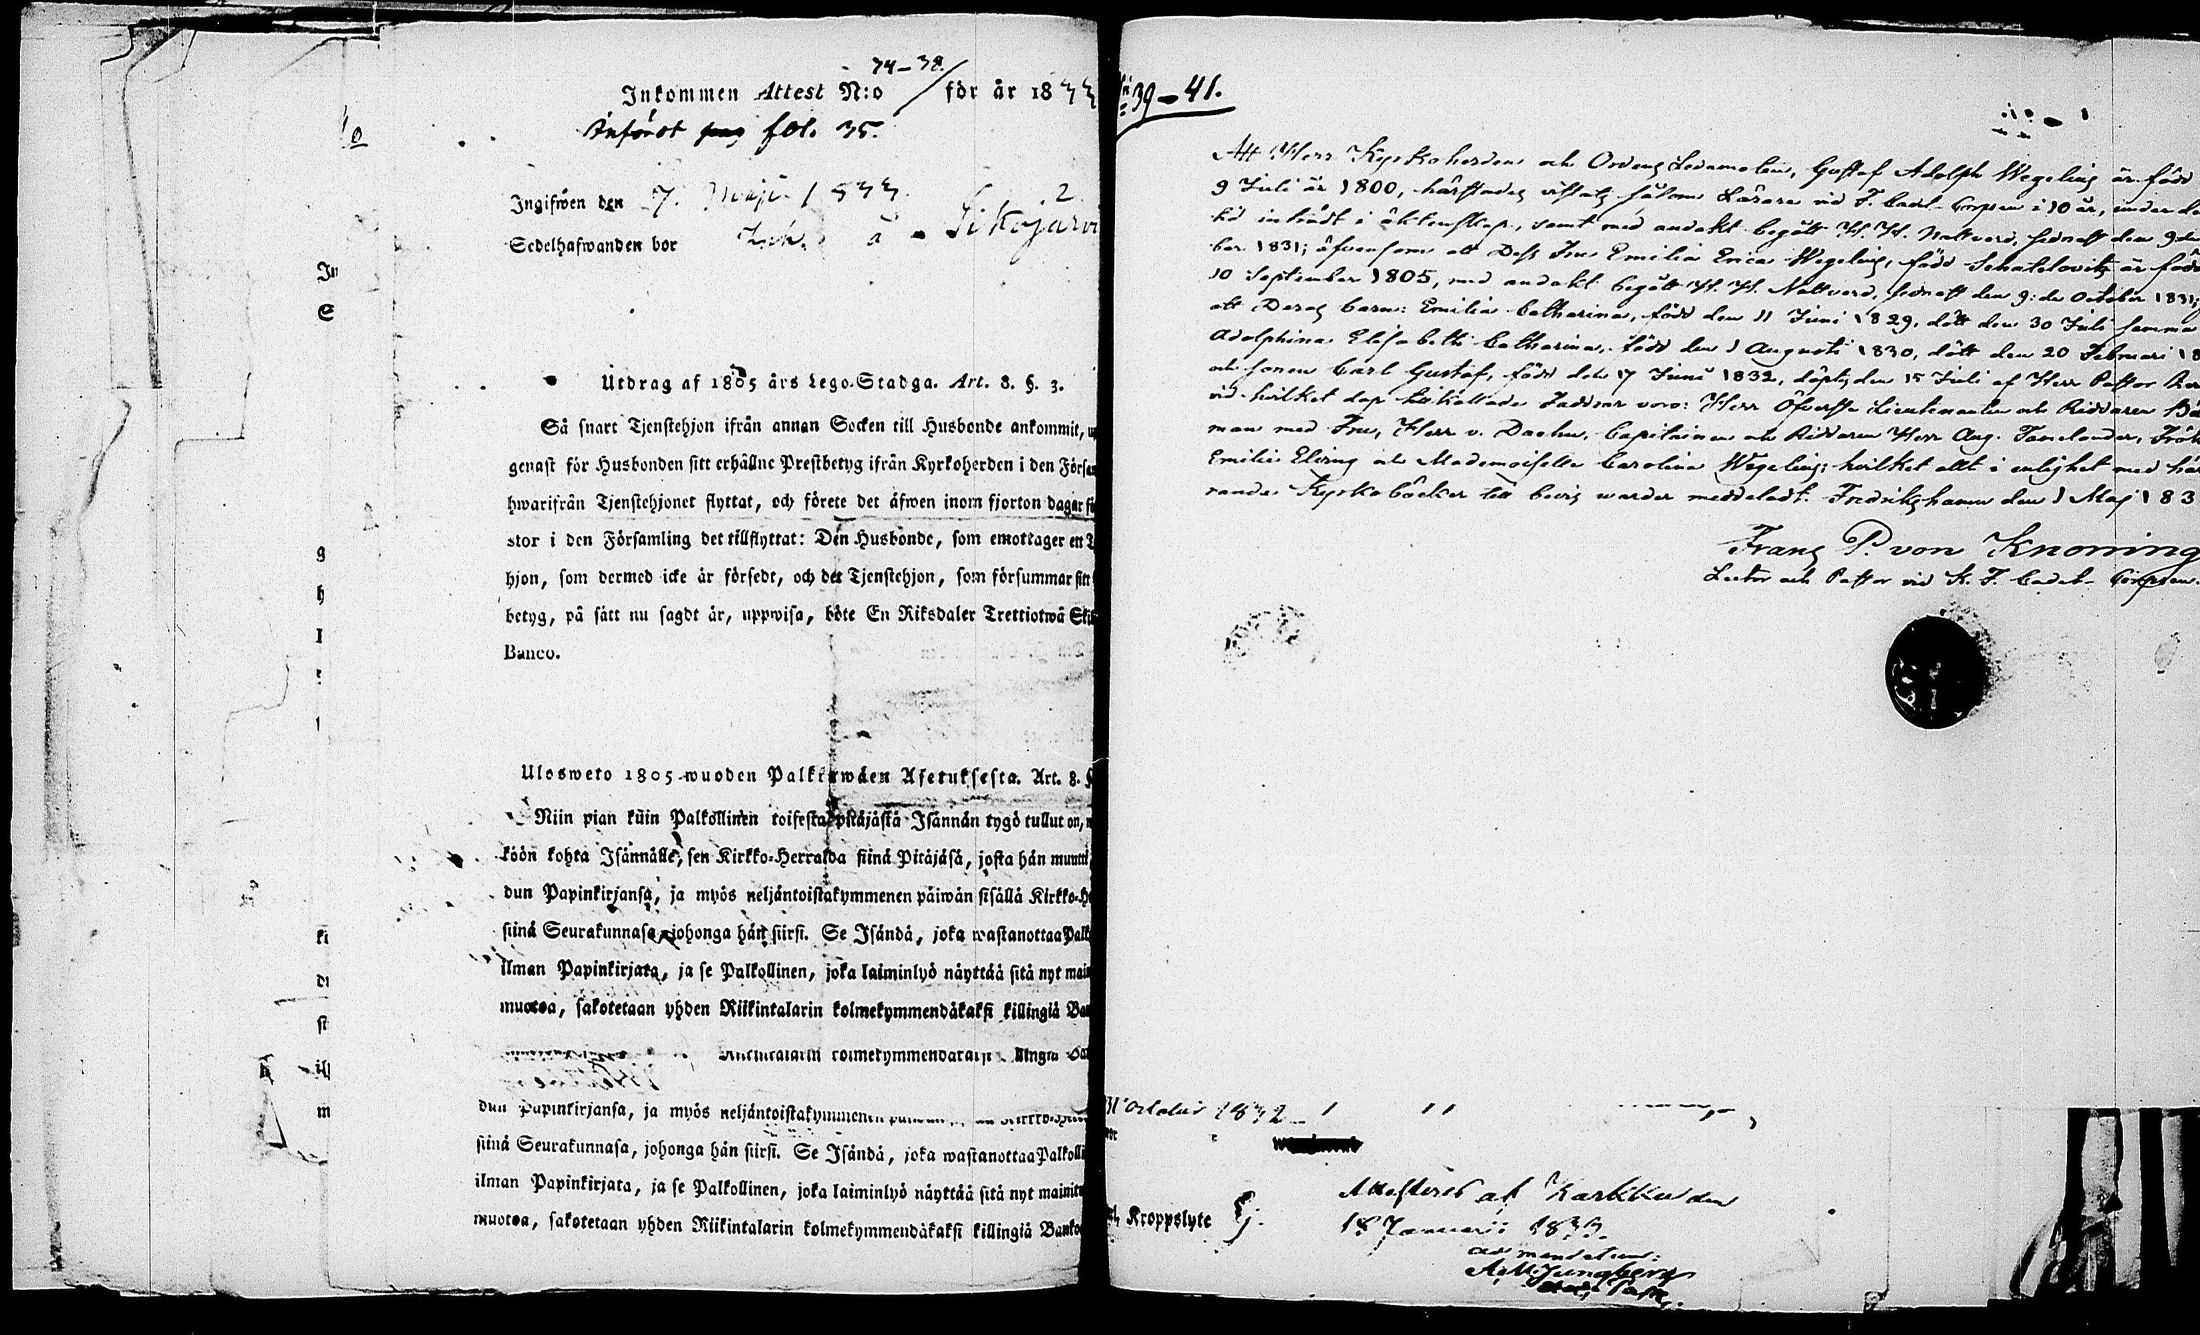 34-38.
Inkommen Attest N:o / för år 1833
Infördt fol. 35.
Ingifwen den 7. Maji 1833
2
Sedelhafwanden bor Ink. å Sikojärvi
Utdrag af 1805 års Lego-Stadga. Art. 8. §. 3.
Så snart Tjenstehjon ifrån annan Socken till Husbonde ankommit,
genast för Husbonden sitt erhållne Prestbetyg ifrån Kyrkoherden i den Församl
hwarifrån Tjenstehjonet flyttat, och förete det äfwen inom fjorton dagar
stor i den Församling det tillflyttat: Den Husbonde, som emottager ett
hjon, som dermed icke är försedt, och det Tjenstehjon, som försummar sitt
betyg, på sätt nu sagdt är, uppwisa, böte En Riksdaler Trettiotwå Skil
Banco.
Ulosweto 1805 wuoden Palkkawäen Asetuksesta. Art. 8. §
Niin pian kuin Palkollinen toisesta pitäjästä Isännän tygö tullut on,
köön kohta Isännälle, sen Kirkko-Herralda siinä Pitäjäsä, josta hän muutti,
dun Papinkirjansa, ja myös neljäntoistakymmenen päiwän sisällä Kirkko-He
siinä Seurakunnasa, johonga hän siirsi. Se Isändä, joka wastanottaa Palk
ilman Papinkirjata, ja se Palkollinen, joka laiminlyö näyttää sitä nyt main
muotoa, sakotetaan yhden Riikintalarin kolmekymmendäkaksi killingiä Ban
dun Papinkirjansa, ja myös neljäntoistakymmenen
siinä Seurakunnasa, johonga hän siirsi. Se Isändä, joka wastanottaa Palkolli
ilman Papinkirjata, ja se Palkollinen, joka laiminlyö näyttää sitä nyt mainitu
muotoa, sakotetaan yhden Riikintalarin kolmekymmendäkaksi killingiä Banko
39-41.
Att Herr Kyrkoherden och Ordens Ledamoten, Gustaf Adolph Wegelius är född
9 Juli år 1800, härstädes vistats såsom Lärare vid F. Cadet-Corpsen i 10 år, under
tid inträdt i äktenskap, samt med andakt begått H. H. Nattvard, sednast den 9:de
ber 1831; äfvensom att Dess Fru Emilia Erica Wegelius, född Schatelowitz är född
10 September 1805, med andakt begått H. H. Nattvard, sednast den 9:de October 1831;
att Deras barn: Emilia Catharina, född den 11 Juni 1829, död den 30 Juli samma
Adolphina Elisabeth Catharina, född den 1 Augusti 1830, död den 20 Februari 18
och sonen Carl Gustaf, född den 17 Juni 1832, döptes den 15 Juli af Herr Pastor
vid hvilket dop tillkallade Faddrar voro: Herr Öfverste Lieutenanten och Riddaren
man med Fru, Herr v. Daehn, Capitainen och Riddaren Herr Aug. Tavelander, Frök
Emilie Elving och Mademoiselle Carolina Wegelius; hvilket allt i enlighet med här
rande Kyrkoböcker till bevis warder meddeladt. Fredrikshamn den 1 Maj 183
Franz P. von Knorring
Lector och Pastor vid K. F. Cadet-Corpsen.
31 October 1832
Kroppslyte Ej.
Attesteras af Karkku den
18 Januarii 1833.
ad mandatum:
A. M. Ljungberg